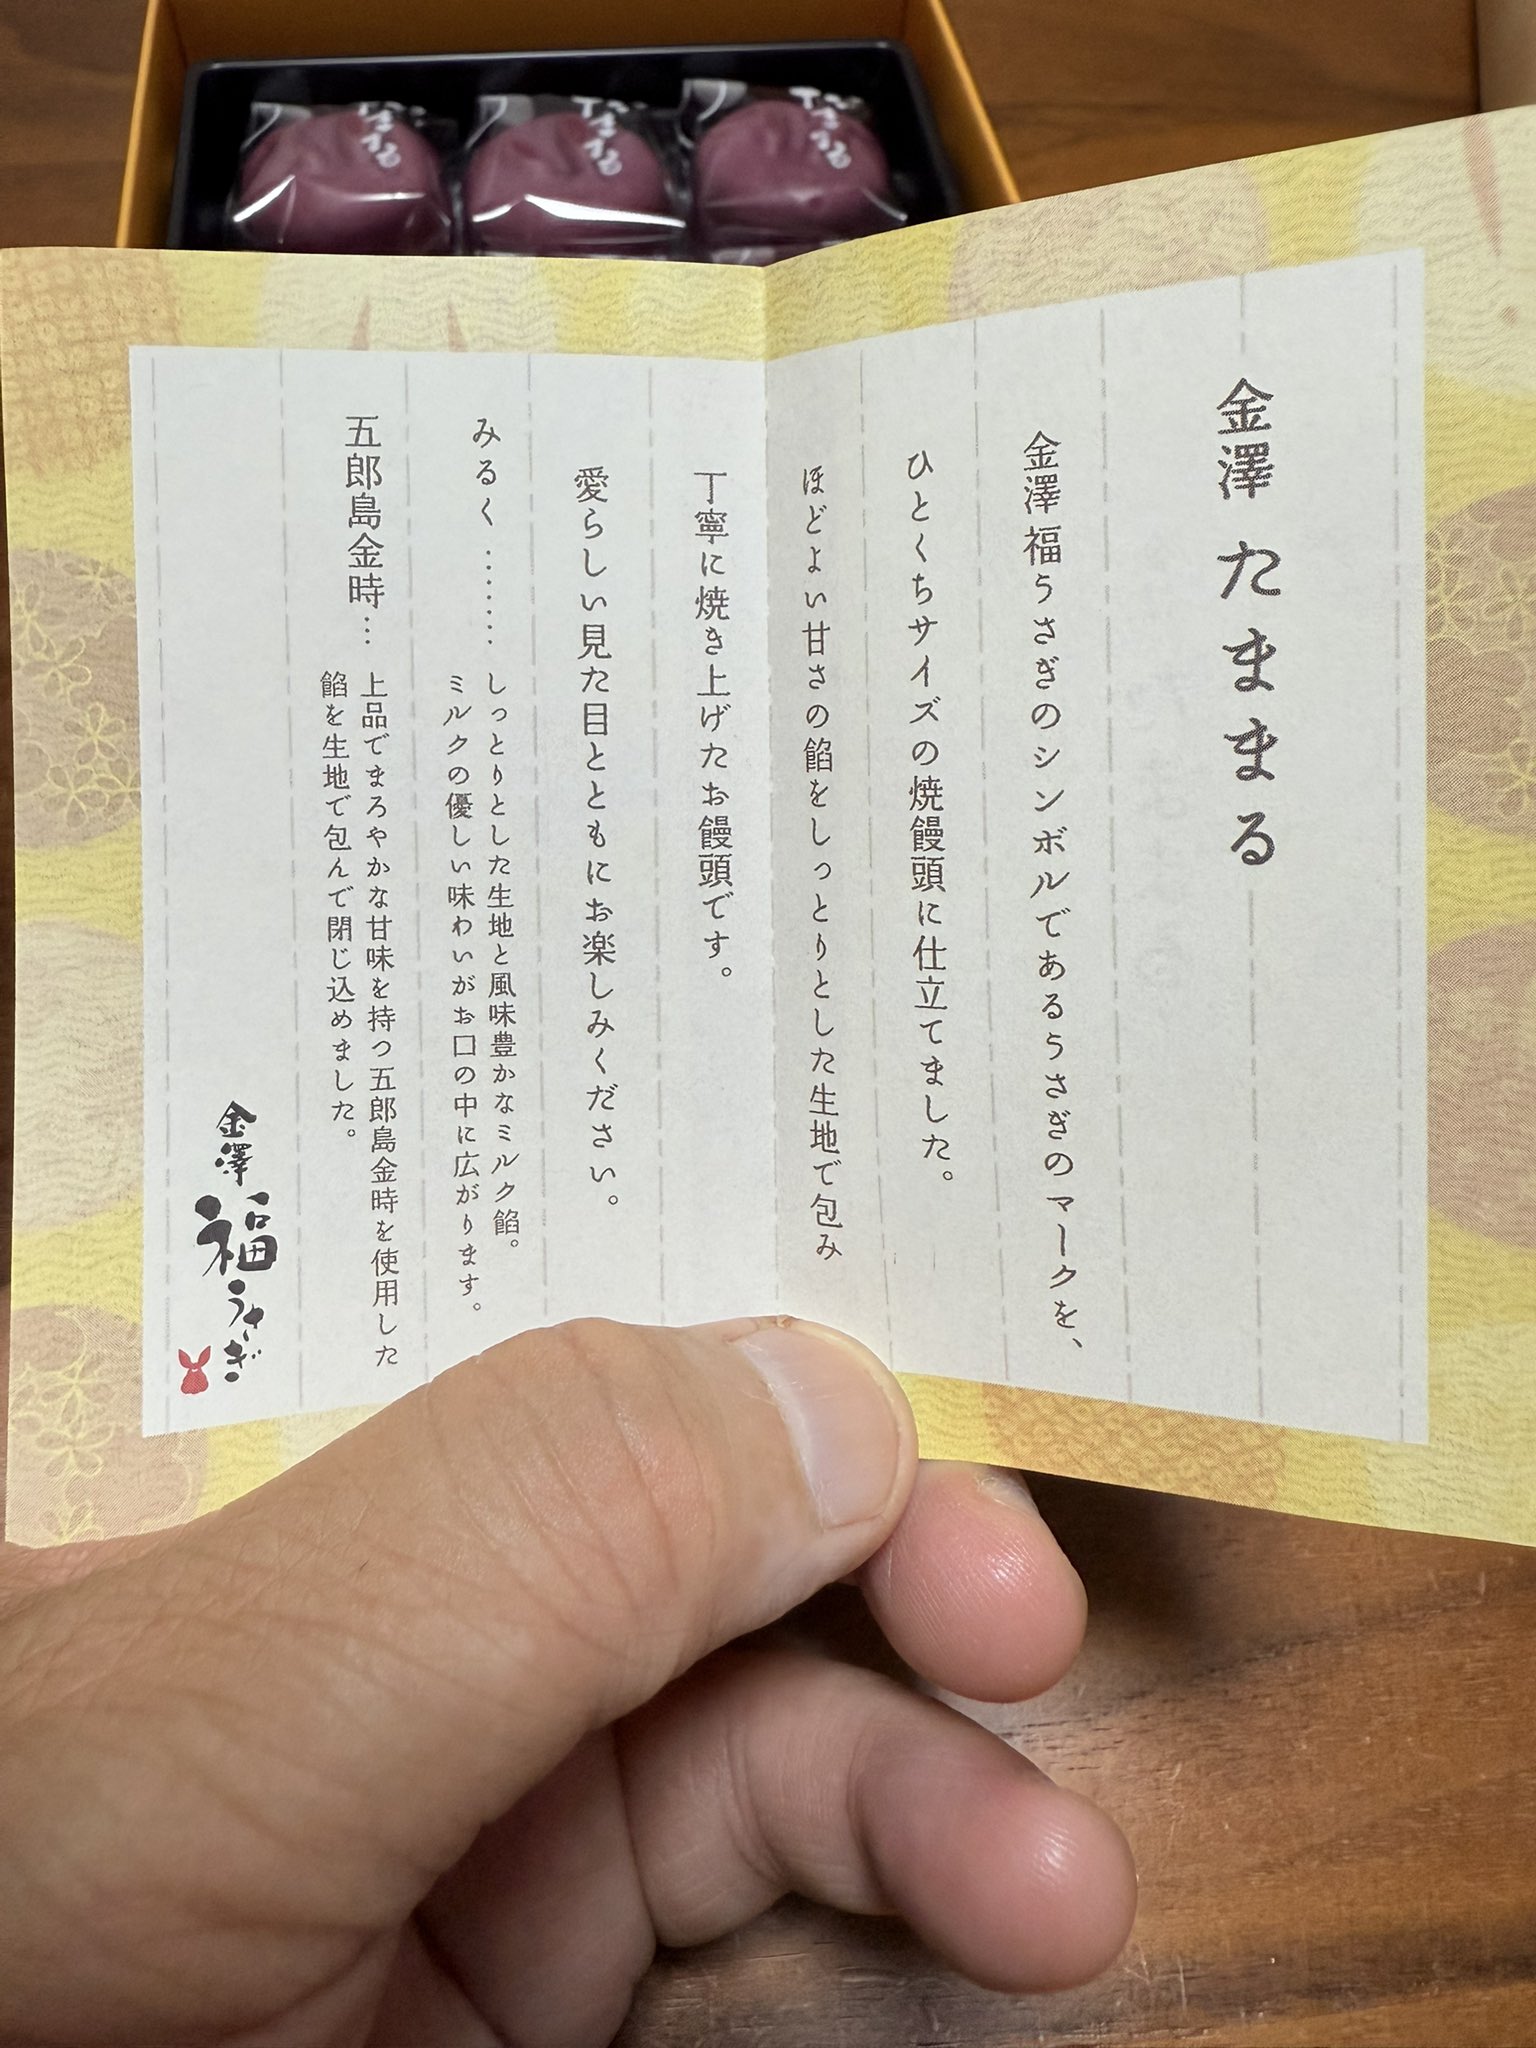 金澤 たままる
金澤 福うさぎのシンボルであるうさぎのマークを、
ひとくちサイズの焼饅頭に仕立てました。
ほどよい甘さの餡をしっとりとした生地で包み
丁寧に焼き上げたお饅頭です。
愛らしい見た目とともにお楽しみください。
みるく ‥‥‥‥ しっとりとした生地と風味豊かなミルク餡。
ミルクの優しい味わいがお口の中に広がります。
五郎島金時… 上品でまろやかな甘味を持つ五郎島金時を使用した
餡を生地で包んで閉じ込めました。
金澤 福うさぎ